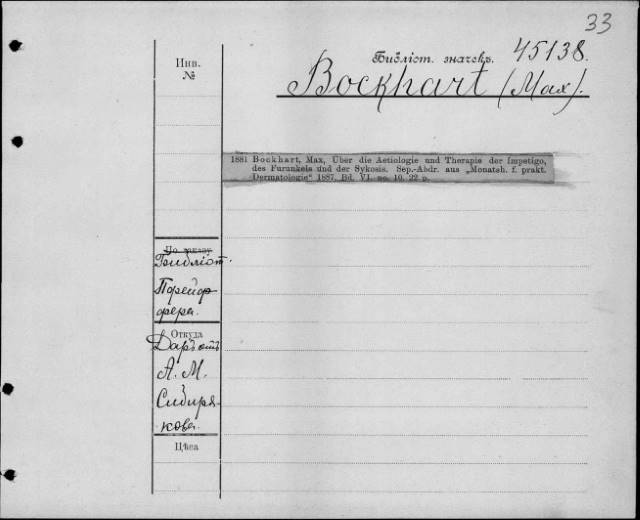 33
Библіот. значекъ. 45138.
Инв.
№
Bockhart (Max).
1881 Bockhart, Max, Über die Aetiologie und Therapie der Impetigo,
des Furunkels und der Sykosis. Sep.-Abdr. aus „Monatsh. f. prakt.
Dermatologie" 1887. Bd. VI. no. 10. 22 p.
По заказу
Библіот.
Пфейф-
фера.
Откуда
Даръ отъ
А. М.
Сибиря-
кова.
Цѣна